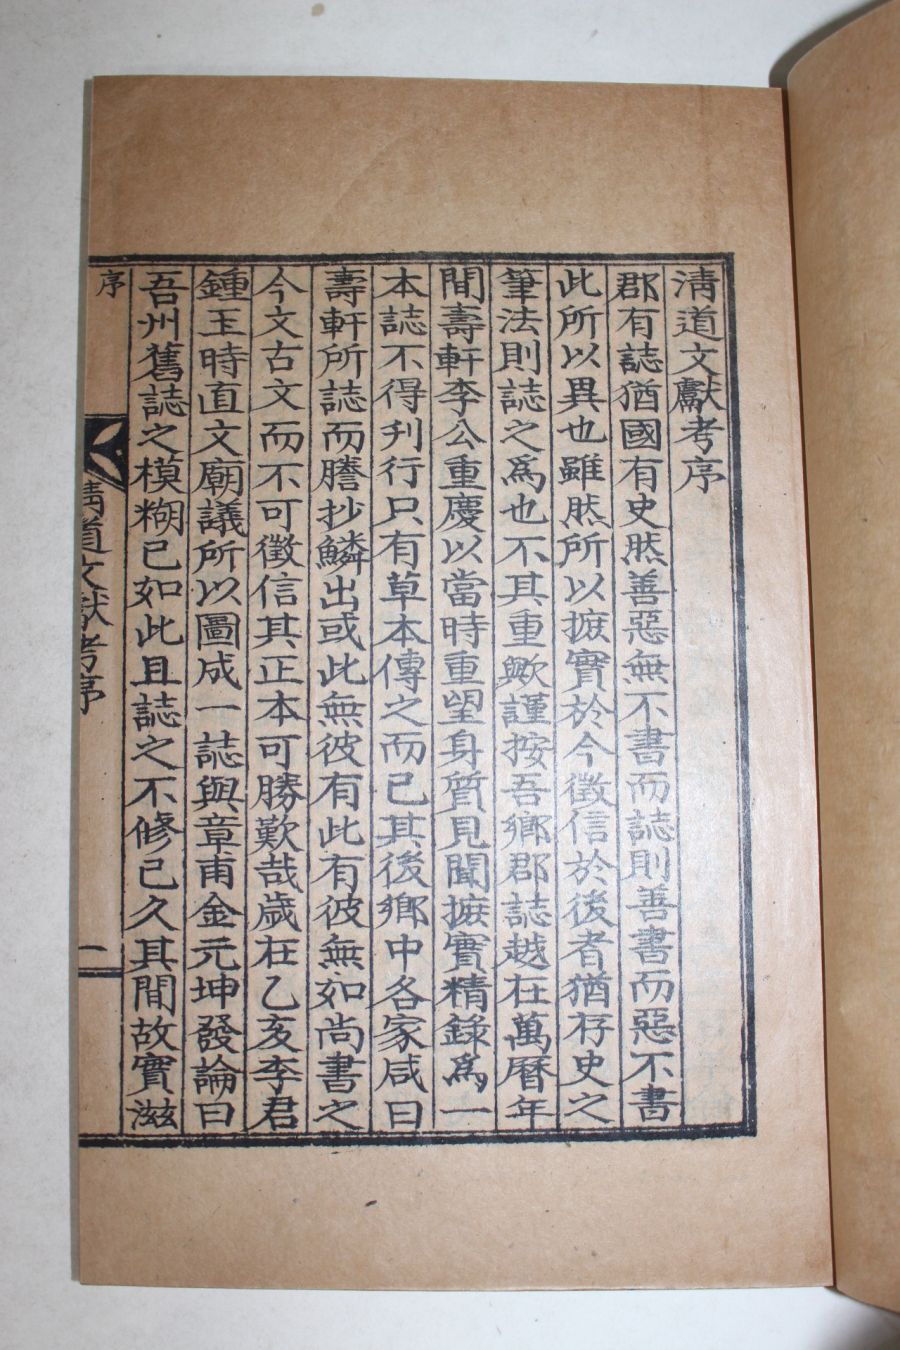 淸道文獻考序
郡有誌猶國有史然善惡無不書而誌則善書而惡不書
此所以異也雖然所以摭實於今徵信於後者猶存史之
筆法則誌之爲也不其重歟謹按吾鄕郡誌越在萬曆年
間壽軒李公重慶以當時重望身質見聞摭實精錄爲一
本誌不得刋行只有草本傳之而已其後鄕中各家咸曰
壽軒所誌而謄抄鱗出或此無彼有此有彼無如尚書之
今文古文而不可徵信其正本可勝歎哉歲在乙亥李君
鍾玉時直文廟議所以圖成一誌與章甫金元坤發論曰
吾州舊誌之模糊已如此且誌之不修已久其間故實滋
序
淸道文獻考序
一